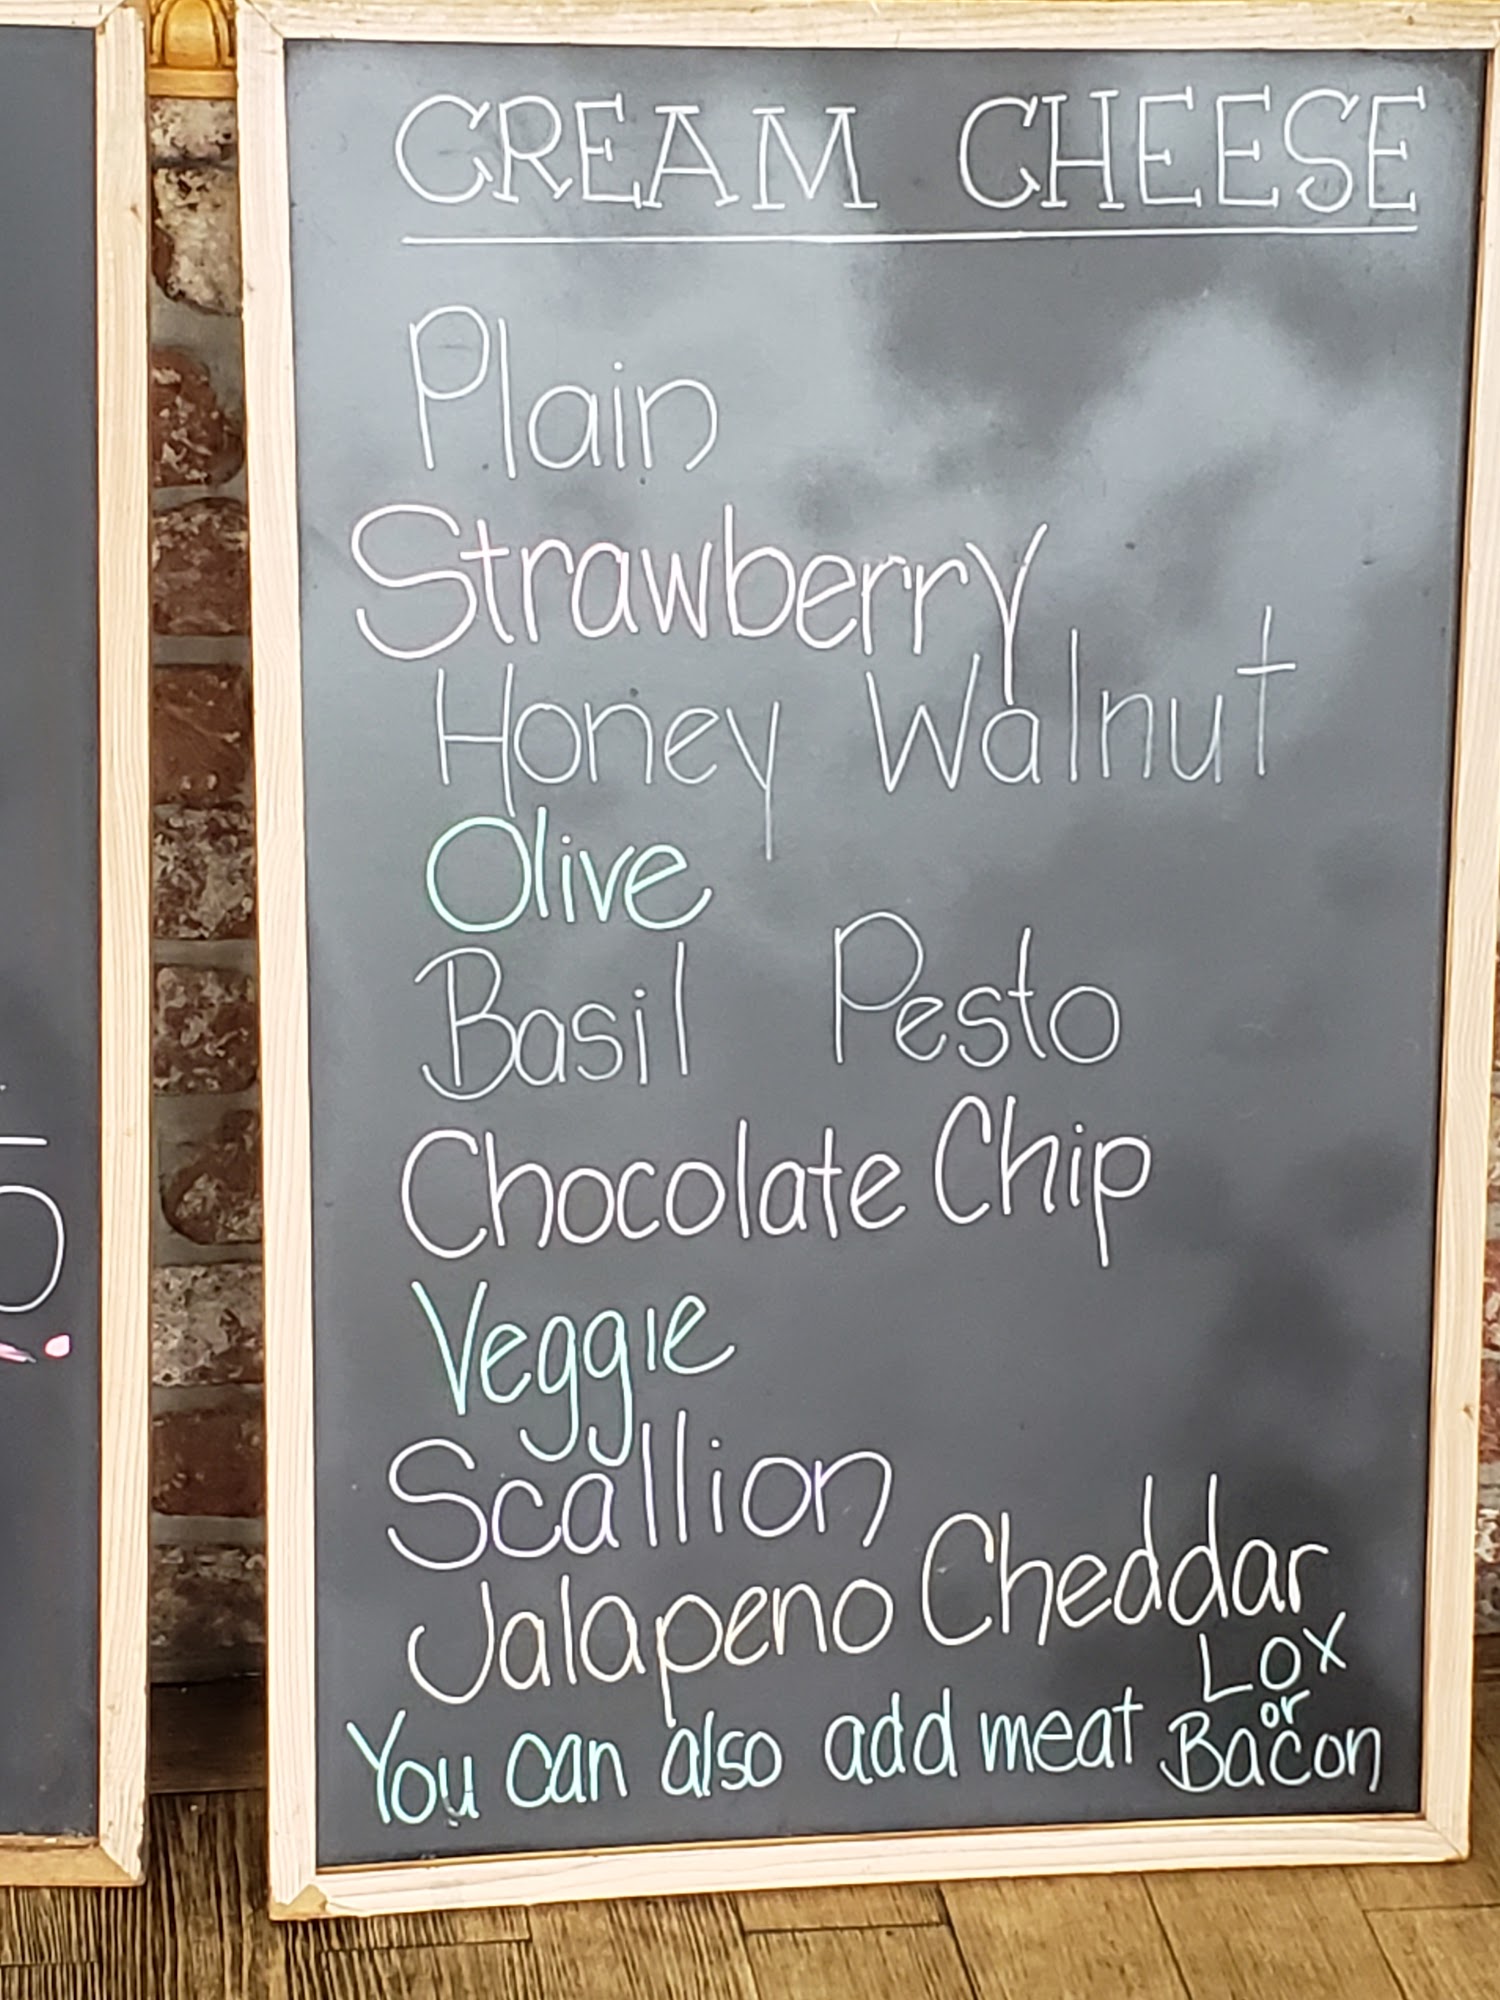 CREAM CHEESE
Plain
Strawberry
Honey Walnut
Olive
Basil Pesto
Chocolate Chip
Veggie
Scallion
Jalapeno Cheddar
You can also add meat Lox
or
Bacon